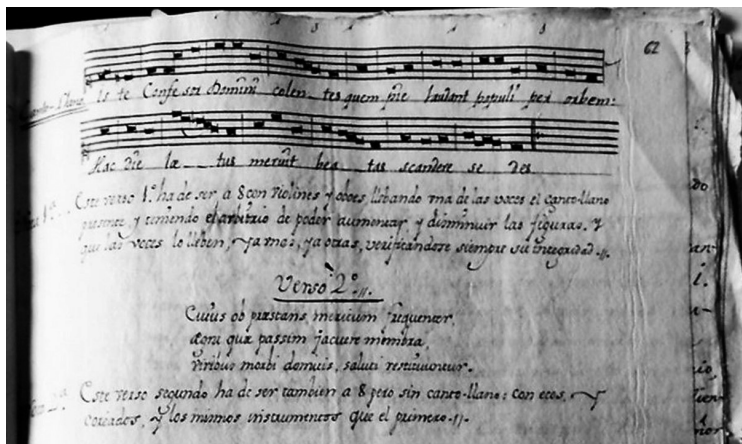 62
Iste Confesor Domini colentes quem pie laudant populi per orbem:
Canto-Llano
Hac die lætus meruit beatas scandere sedes
Este verso 1.º ha de ser a 8 con violines y oboes, llebando una de las voces el canto-llano
presente, y teniendo el arbitrio de poder aumentar y diminuir las figuras. Y
que las voces lo lleben, ya unos, ya otras, verificandose siempre su integridad.
Verso 2.º
Cuius ob præstans, meritum frequenter,
ægra quæ passim jacuere membra,
viribus morbi domitis, saluti restituuntur.
Este verso segundo ha de ser tambien a 8 pero sin canto-llano: con ecos, y
coreados, y los mismos instrumentos que el primero.